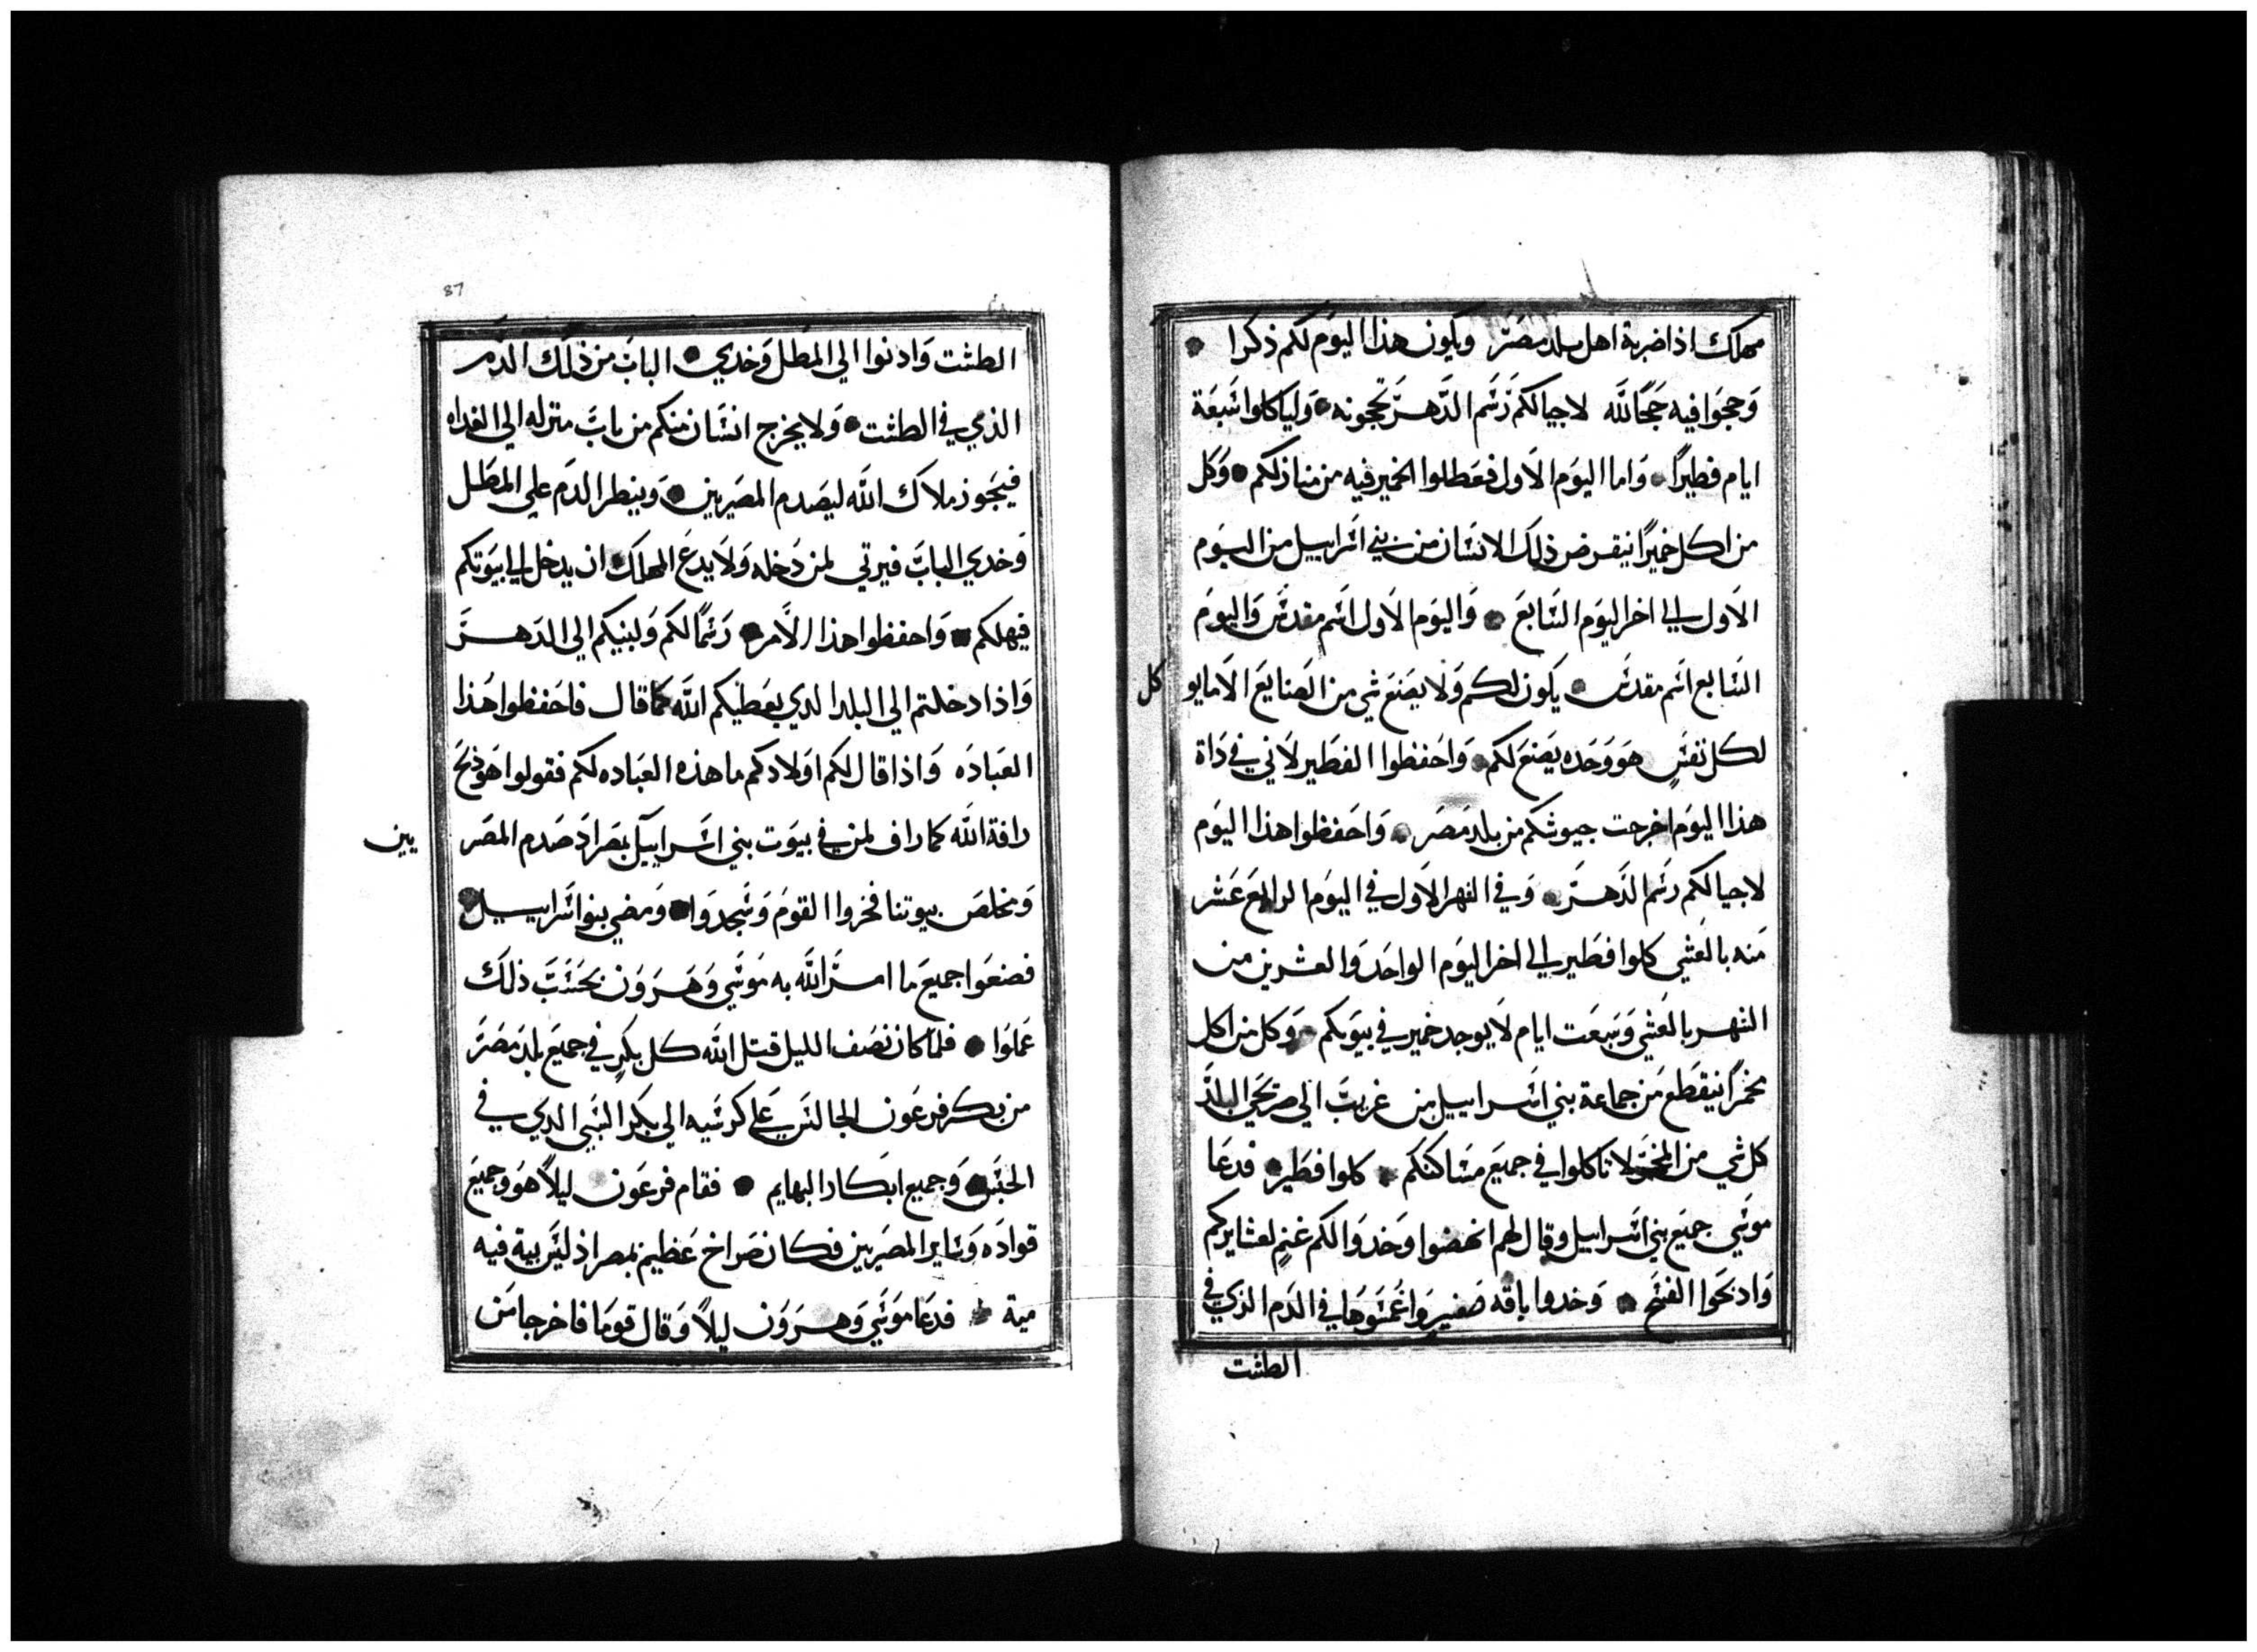 مهلك اذا ضربة اهل بلد مصر ويكون هذا اليوم لكم ذكرا
وحجوا فيه حجا لله لاجيالكم رسم الدهر تحجونه وليا كلوا سبعة
ايام فطيرا واما اليوم الاول فعطلوا الخمير فيه من منازلكم وكل
من اكل خميرا ينقرض ذلك الانسان من بني اسراييل من اليوم
الاول الي اخر اليوم السابع واليوم الاول اسم مقدس واليوم
السابع اسم مقدس يكون لكم ولا يصنع شي من الصنايع الا ما يو
كل
لكل نفس هو وحده يصنع لكم واحفظوا الفطير لاني في داة
هذا اليوم اخرجت جيوشكم من بلد مصر واحفظوا هذا اليوم
لاجيالكم رسم الدهر وفي الشهر الاول في اليوم الرابع عشر
منه بالعشي كلوا فطير الي اخر اليوم الواحد والعشرين من
الشهر بالعشي وسبعت ايام لا يوجد خمير في بيوتكم وكل من اكل
مخمرا ينقطع من جماعة بني اسراييل من غريب الي صريحي البلد
كل شي من لا تاكلوا في جميع مساكنكم كلوا فطير فدعا
موسي جميع بني اسراييل وقال لهم انهضوا وخدوا لكم غنم لعشايركم
وادبحوا الفسح وخدوا باقه صغير واغمسوها في الدم الذي في
الطشت
87
الطشت وادنوا الي المطل وخدي الباب من ذلك الدم
الذي في الطشت ولا يخرج انسان منكم من باب منزله الي الغداه
فيجوز ملاك الله ليصدم المصريين وينظر الدم علي المطل
وخدي الباب فيرتي لمن دخله ولا يدع المهلك ان يدخل الي بيوتكم
فيهلكم واحفظوا هذا الامر رسما لكم ولبنيكم الي الدهر
واذا دخلتم الي البلد الدي يعطيكم الله كما قال فاحفظوا هذا
العباده واذا قال لكم اولادكم ما هذه العباده لكم فقولوا هو ذبح
رافة الله كما راف لمن في بيوت بني اسراييل بمصر اد صدم المصر
يين
ومخلص بيوتنا فخروا القوم وسجدوا ومضي بنوا اسراييل
فصنعوا جميع ما امر الله به موسي وهرون بحسب ذلك
عملوا فلما كان نصف الليل قتل الله كل بكر في جميع بلد مصر
من بكر فرعون الجالس علي كرسيه الي بكر السبي الدي في
الحبس وجميع ابكار البهايم فقام فرعون ليلا هو وجميع
قواده وساير المصريين فكان صراخ عظيم بمصر اذ ليس بية فيه
مية فدعا موسي وهرون ليلا وقال قوما فاخرجا من